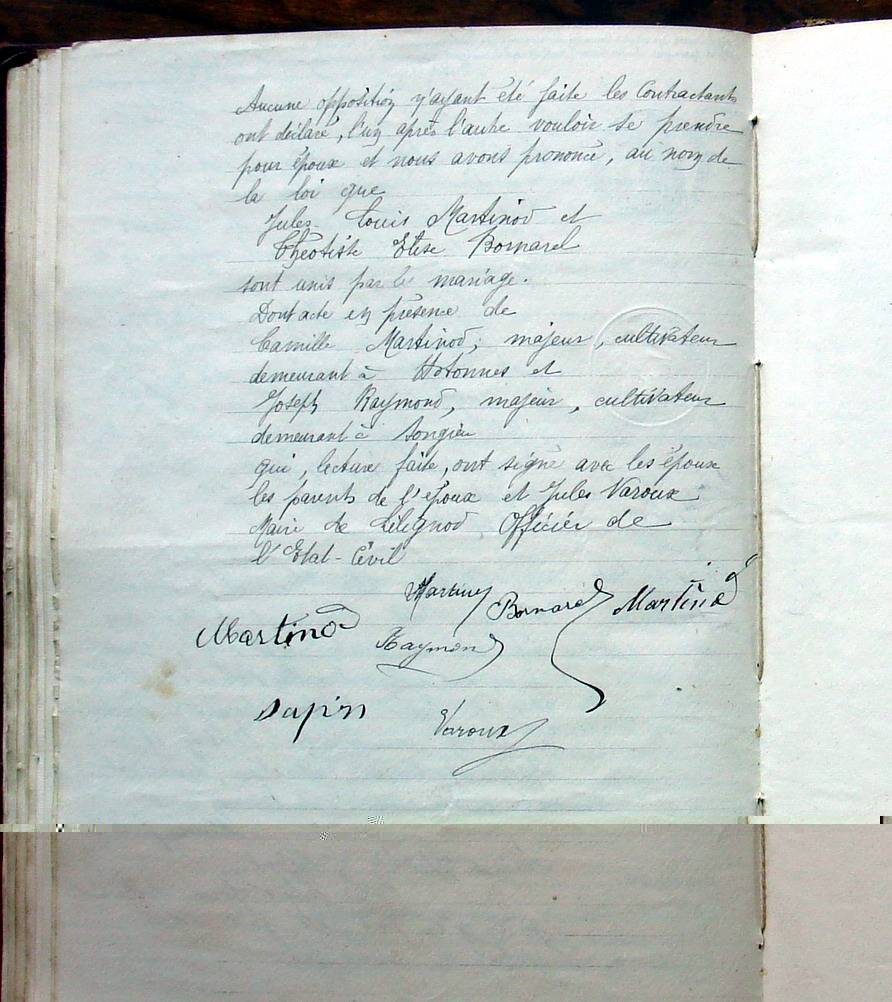 Aucune opposition n'ayant été faite les Contractants
ont déclaré, l'un après l'autre vouloir se prendre
pour époux et nous avons prononcé, au nom de
la loi que
Jules Louis Martinod et
Théotiste Elise Bornarel
sont unis par le mariage.
Dont acte en présence de
Camille Martinod, majeur, cultivateur
demeurant à Hotonnes et
Joseph Raymond, majeur, cultivateur
demeurant à Songieu
qui, lecture faite, ont signé avec les époux
les parents de l'époux et Jules Varoux
Maire de Lilignod Officier de
l'Etat-Civil
Martinod Bornarel Martinod
Martinod Raymond
Sapin Varoux